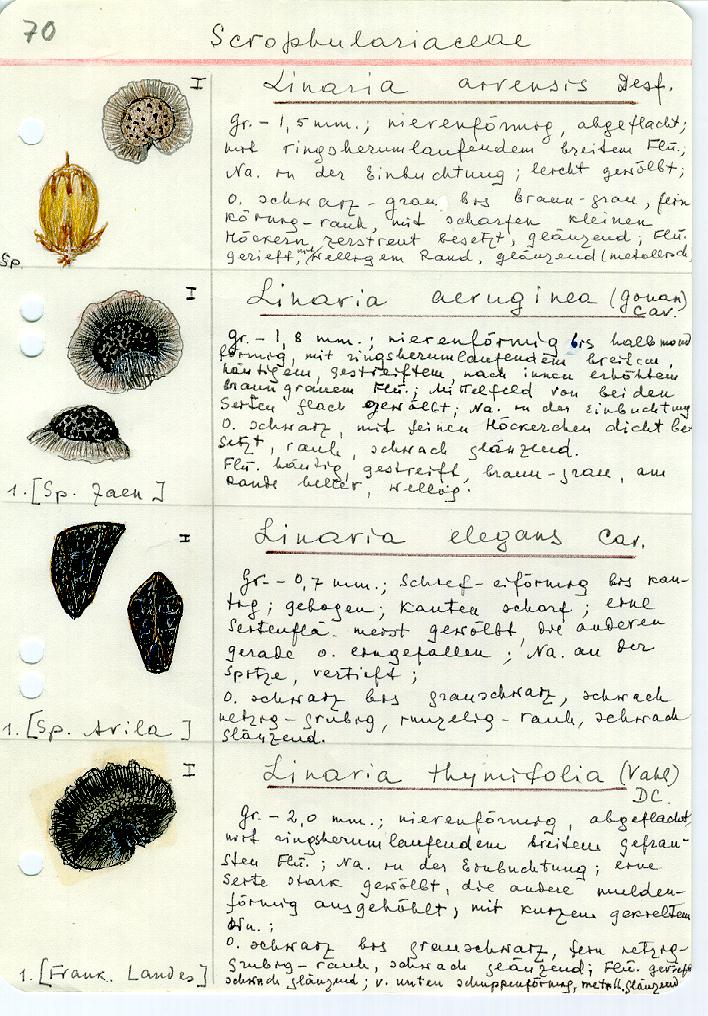 70
Scrophulariaceae
I
Linaria arvensis Desf.
Gr. - 1,5 mm.; nierenförmig, abgeflacht;
mit ringsherumlaufendem breitem Flü.;
Na. in der Einbuchtung; leicht gewölbt;
O. schwarz-grau bis braun-grau, fein
körnig-rauh, mit scharfen kleinen
Höckern zerstreut besetzt, glänzend; Flü.
gerieft, mit welligem Rand, glänzend (metallisch
Sp.
I
Linaria aeruginea (Gouan)
Cav.
Gr. - 1,8 mm.; nierenförmig bis halbmond
förmig, mit ringsherumlaufendem breitem,
häutigem, gestreiftem, nach innen erhöhtem
braungrauem Flü.; Mittelfeld von beiden
Seiten flach gewölbt; Na. in der Einbuchtung
O. schwarz, mit feinen Höckerchen dicht be-
setzt, rauh, schwach glänzend.
Flü. häutig, gestreift, braun-grau, am
Rande heller, wellig.
1. [Sp. Jaen]
I
Linaria elegans Cav.
Gr. - 0,7 mm.; Schief-eiförmig bis kan-
tig; gebogen; Kanten scharf; eine
Seitenflä. meist gewölbt, die anderen
gerade o. eingefallen; Na. an der
Spitze, vertieft;
O. schwarz bis grauschwarz, schwach
netzig-grubig, runzelig-rauh, schwach
glänzend.
1. [Sp. Avila]
I
Linaria thymifolia (Vahl)
DC.
Gr. - 2,0 mm.; nierenförmig, abgeflacht,
mit ringsherumlaufendem breitem gefran-
sten Flü.; Na. in der Einbuchtung; eine
Seite stark gewölbt, die andere mulden-
förmig ausgehöhlt, mit kurzem
O. schwarz bis grauschwarz, fein netzig-
grubig-rauh, schwach glänzend; Flü. gerieft
schwach glänzend; v. unten schuppenförmig, metall. glänzend
1. [Frank. Landes]